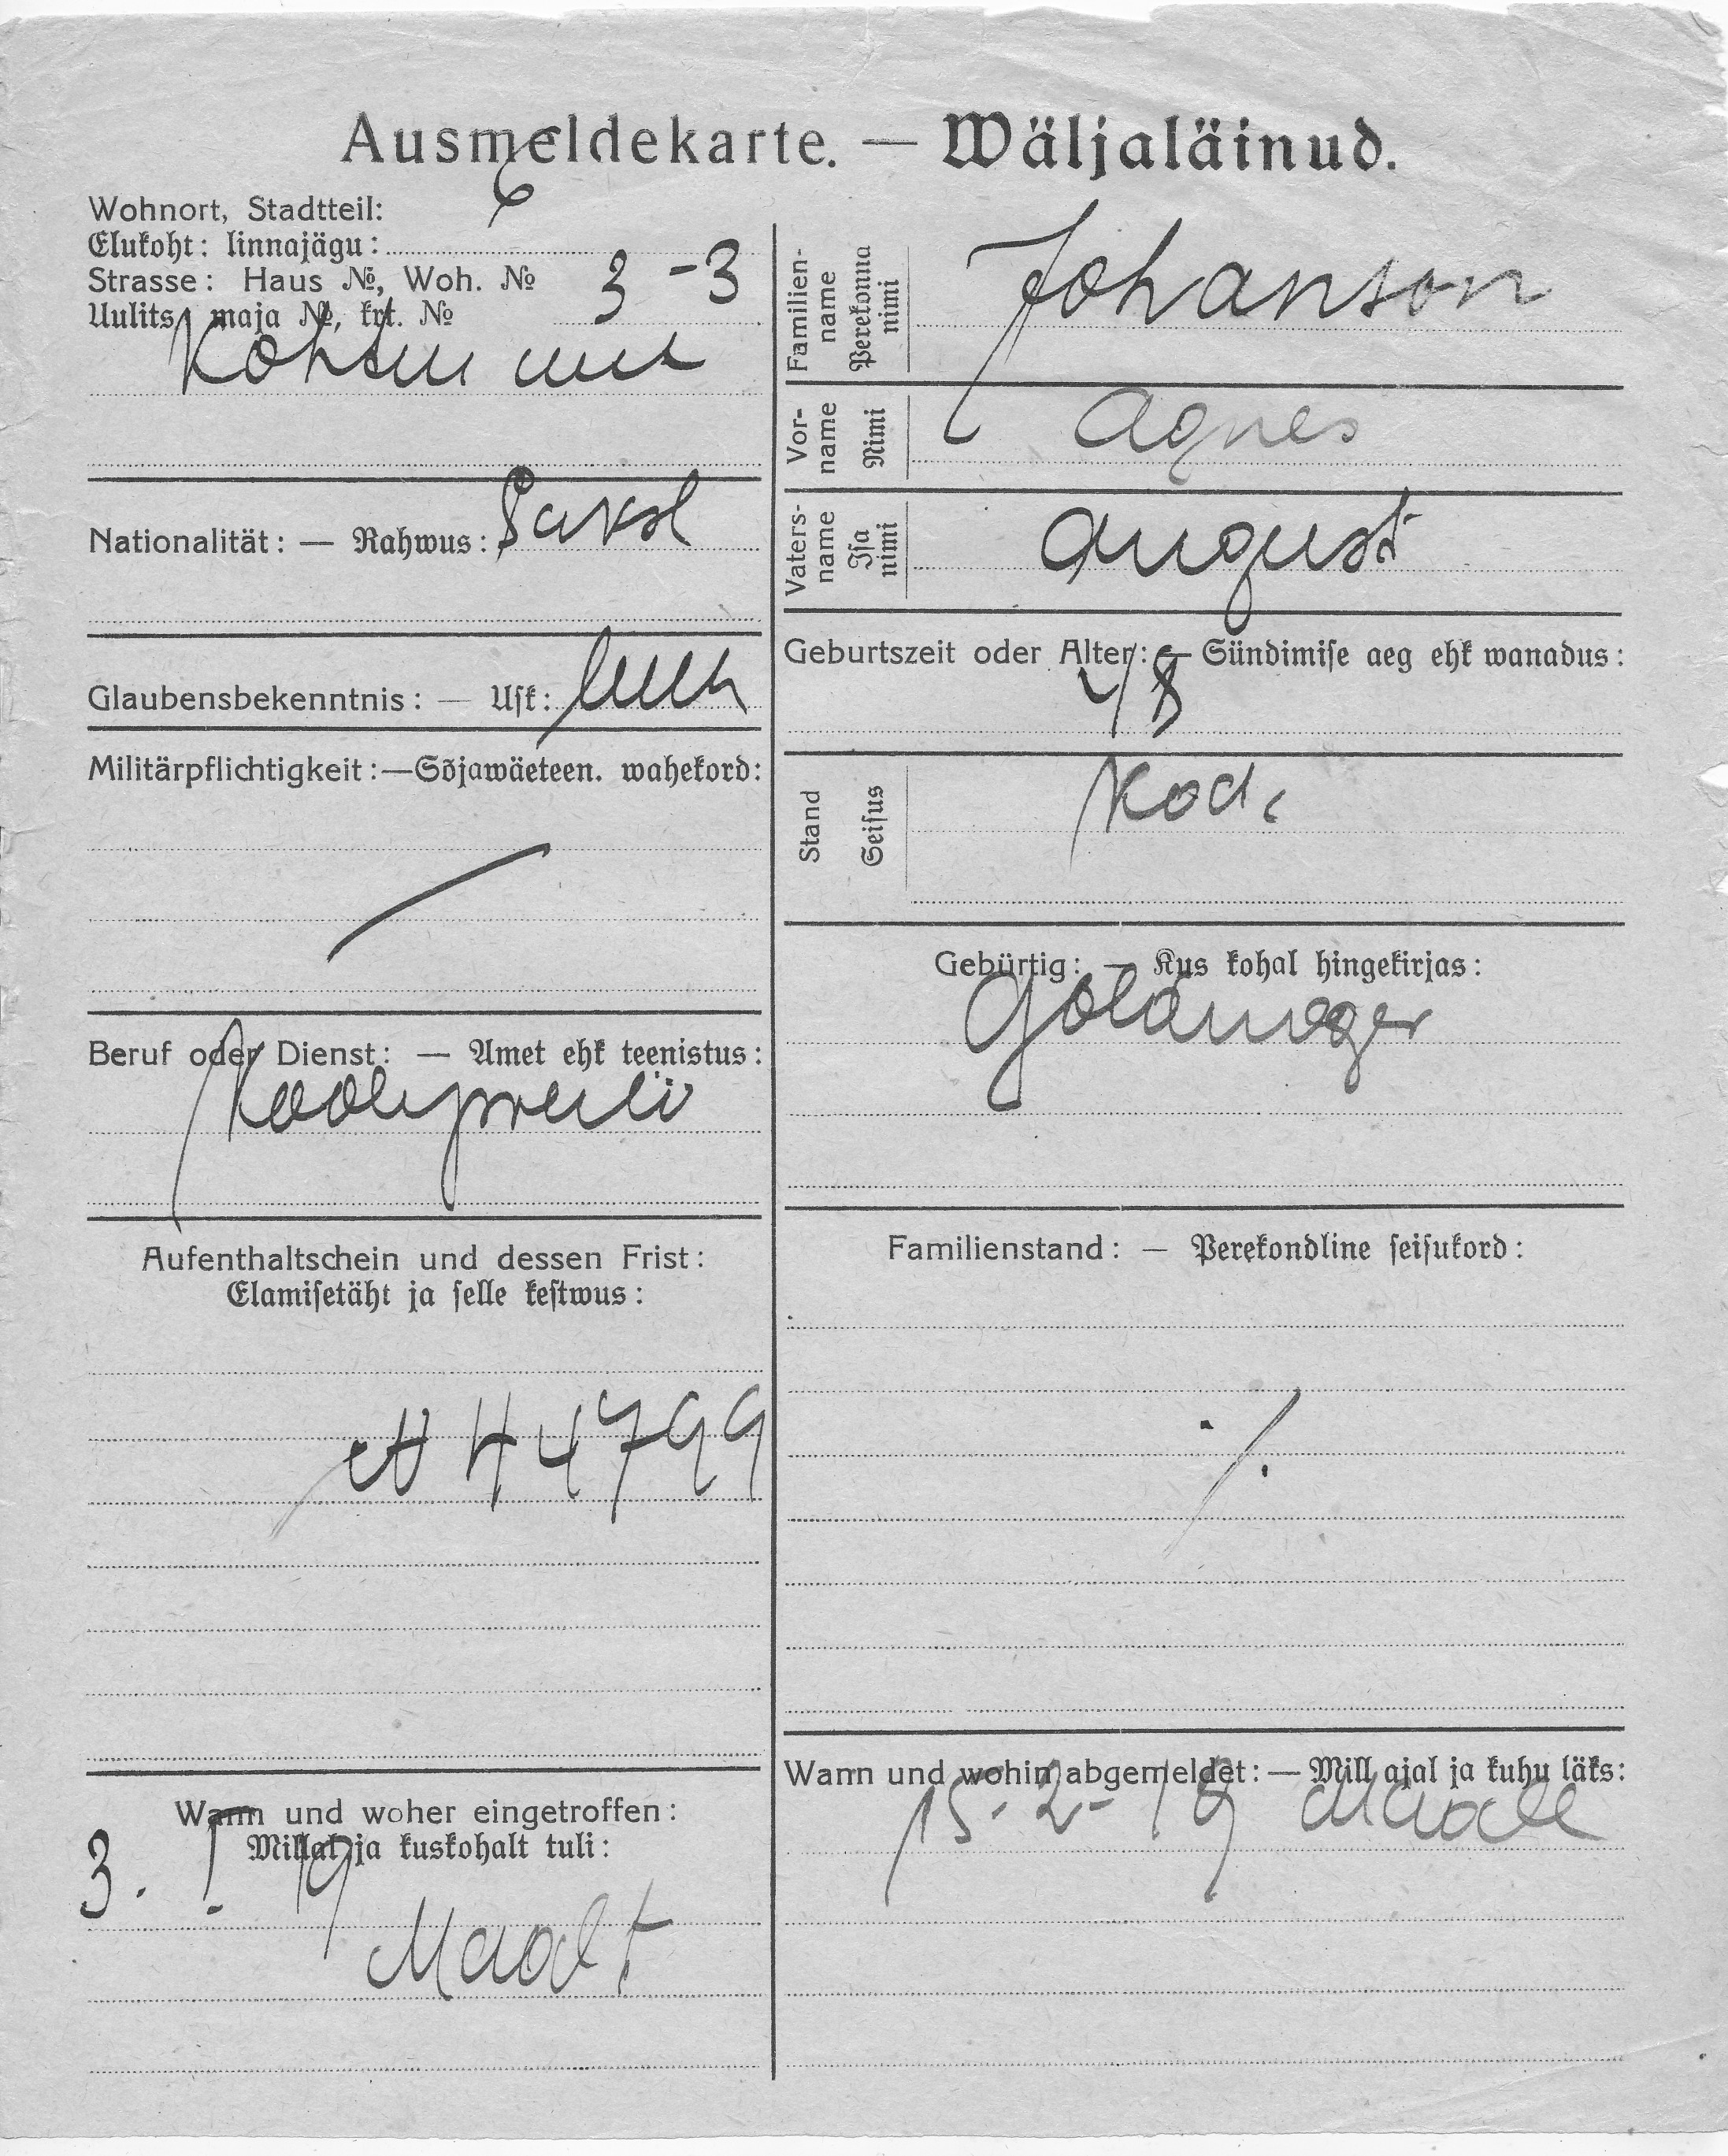 Ausmeldekarte. — Wäljaläinud.
Wohnort, Stadtteil:
Elukoht: linnajägu:
6
Strasse: Haus №, Woh. №
Uulits, maja №, krt. №
3 - 3
Nationalität: — Rahwus:
Glaubensbekenntnis: — Usk:
Militärpflichtigkeit: — Sõjawäeteen. wahekord:
Beruf oder Dienst: — Amet ehk teenistus:
Aufenthaltschein und dessen Frist:
Elamisetäht ja selle kestwus:
44799
Wann und woher eingetroffen:
Millal ja kuskohalt tuli:
3. I. 19
Maalt
Familien-name Perekonna nimi
Johanson
Vor-name Nimi
Agnes
Vaters-name Isa nimi
August
Geburtszeit oder Alter: — Sündimise aeg ehk wanadus:
Stand Seisus
Kod.
Gebürtig: — Kus kohal hingekirjas:
Familienstand: — Perekondline seisukord:
Wann und wohin abgemeldet: — Mill ajal ja kuhu läks:
15 - 2 - 19 Maale